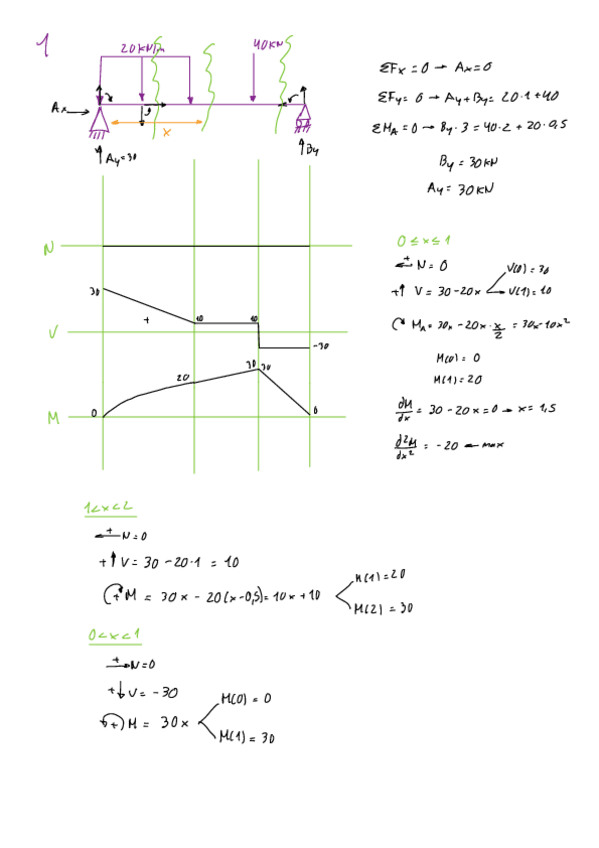 1
20 kN/m
40 kN
Ax
x
Ay=30
By
ΣFx = 0 → Ax = 0
ΣFy = 0 → Ay + By = 20·1 + 40
ΣMA = 0 → By · 3 = 40·2 + 20·0,5
By = 30 kN
Ay = 30 kN
N
30
+
10
10
V
-30
20
30
30
M
0
0
0 ≤ x ≤ 1
+ N = 0
+↑ V = 30 - 20x
V(0) = 30
V(1) = 10
MA = 30x - 20x · x/2 = 30x - 10x²
M(0) = 0
M(1) = 20
dM/dx = 30 - 20x = 0 → x = 1,5
d²M/dx² = -20 ← max
1 < x < 2
+ N = 0
+↑ V = 30 - 20·1 = 10
+ M = 30x - 20(x - 0,5) = 10x + 10
M(1) = 20
M(2) = 30
0 < x < 1
+ N = 0
+↓ V = -30
+ M = 30x
M(0) = 0
M(1) = 30